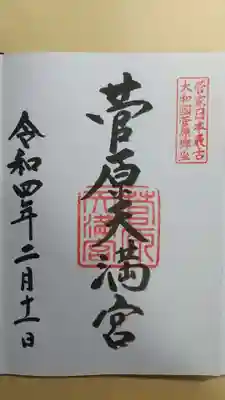 菅家日本最古
大和國菅原
菅原天満宮
菅原
天満宮
令和四年二月十一日